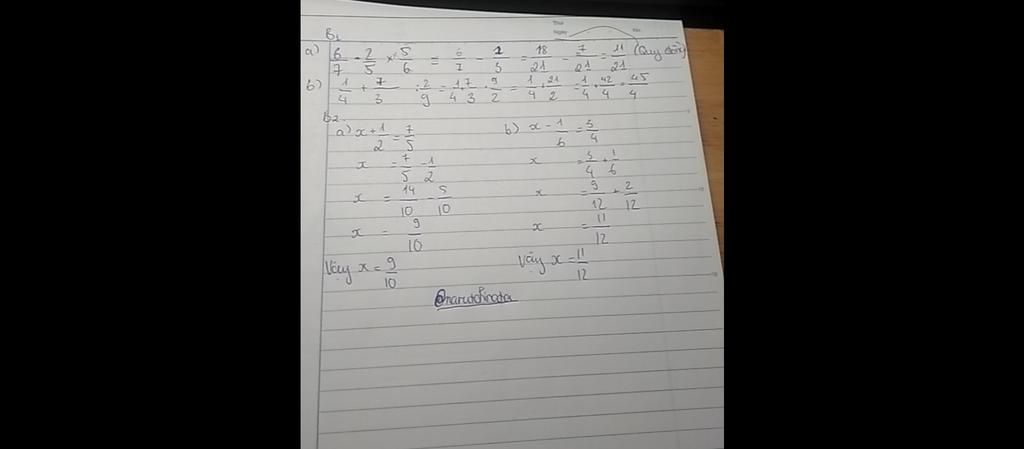 B1
a) 6/7 - 2/5 × 5/6 = 6/7 - 1/3 = 18/21 - 7/21 = 11/21 (Quy đồng)
b) 1/4 + 7/3 : 2/9 = 1/4 + 7/3 . 9/2 = 1/4 + 21/2 = 1/4 + 42/4 = 45/4
B2
a) x + 1/2 = 7/5
x = 7/5 - 1/2
x = 14/10 - 5/10
x = 9/10
Vậy x = 9/10
b) x - 1/6 = 3/4
x = 3/4 + 1/6
x = 9/12 + 2/12
x = 11/12
Vậy x = 11/12